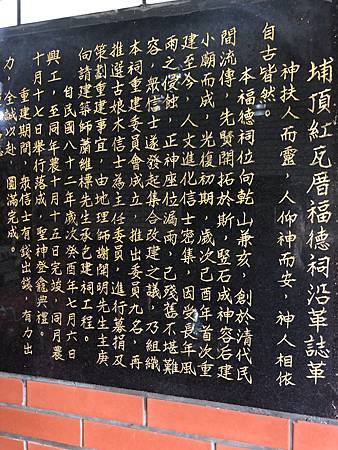 埔頂紅瓦厝福德祠沿革誌革
神扶人而靈，人仰神而安，神人相依
自古皆然。
本福德祠位向乾山兼亥，創於清代民
間流傳，先賢開拓於斯，堅石成神容石建
小廟而成，光復初期，歲次己酉年首次重
建至今，人文進化信士密集，因受長年風
雨之侵蝕，正神座位漏雨，已殘舊不堪難
容，眾信士遂發起集合改建之議，乃組織
本祠重建委員會成立，推出委員九名，再
推選古娘木信士為主任委員，進行募捐及
策劃重建事宜，由地理師謝開明先生主庚
向請建築師蕭維標先生承已建祠工程。
自民國八十二年歲次癸酉年七月六日
興工，至同年農十月十五日完竣，同月農
十月十七日舉行落成，聖神登龕典禮。
重建期間，眾信士有錢出錢，有力出
力，全誠以赴，圓滿完成。